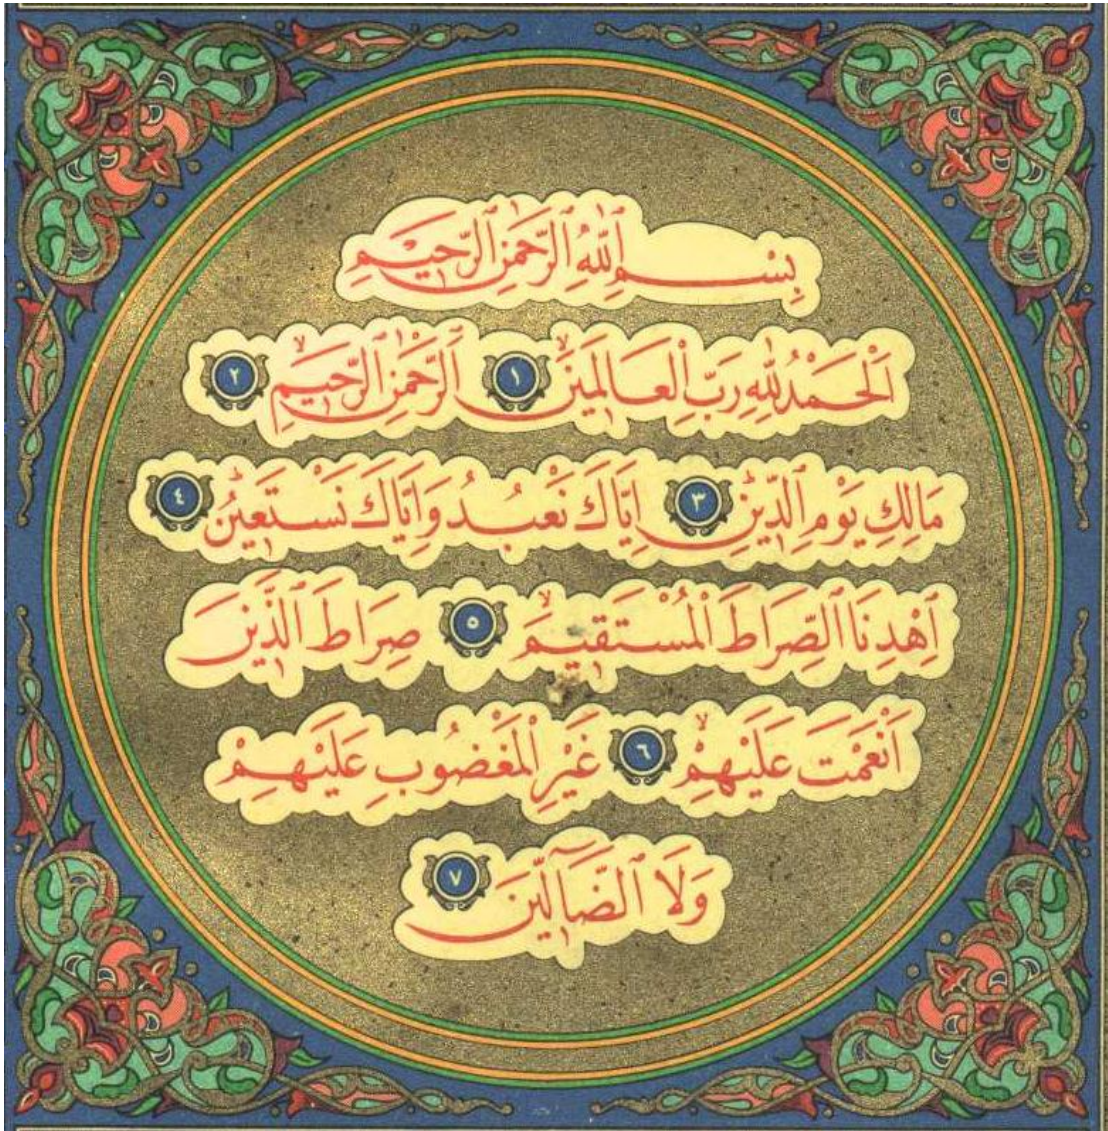 بِسْمِ ٱللّٰهِ ٱلرَّحْمٰنِ ٱلرَّحِيمِ
اَلْحَمْدُ لِلّٰهِ رَبِّ ٱلْعَالَمِينَ ١ اَلرَّحْمٰنِ ٱلرَّحِيمِ ٢
مَالِكِ يَوْمِ ٱلدِّينِ ٣ اِيَّاكَ نَعْبُدُ وَاِيَّاكَ نَسْتَعِينُ ٤
اِهْدِنَا ٱلصِّرَاطَ ٱلْمُسْتَقِيمَ ٥ صِرَاطَ ٱلَّذِينَ
اَنْعَمْتَ عَلَيْهِمْ ٦ غَيْرِ ٱلْمَغْضُوبِ عَلَيْهِمْ
وَلَا ٱلضَّآلِّينَ ٧